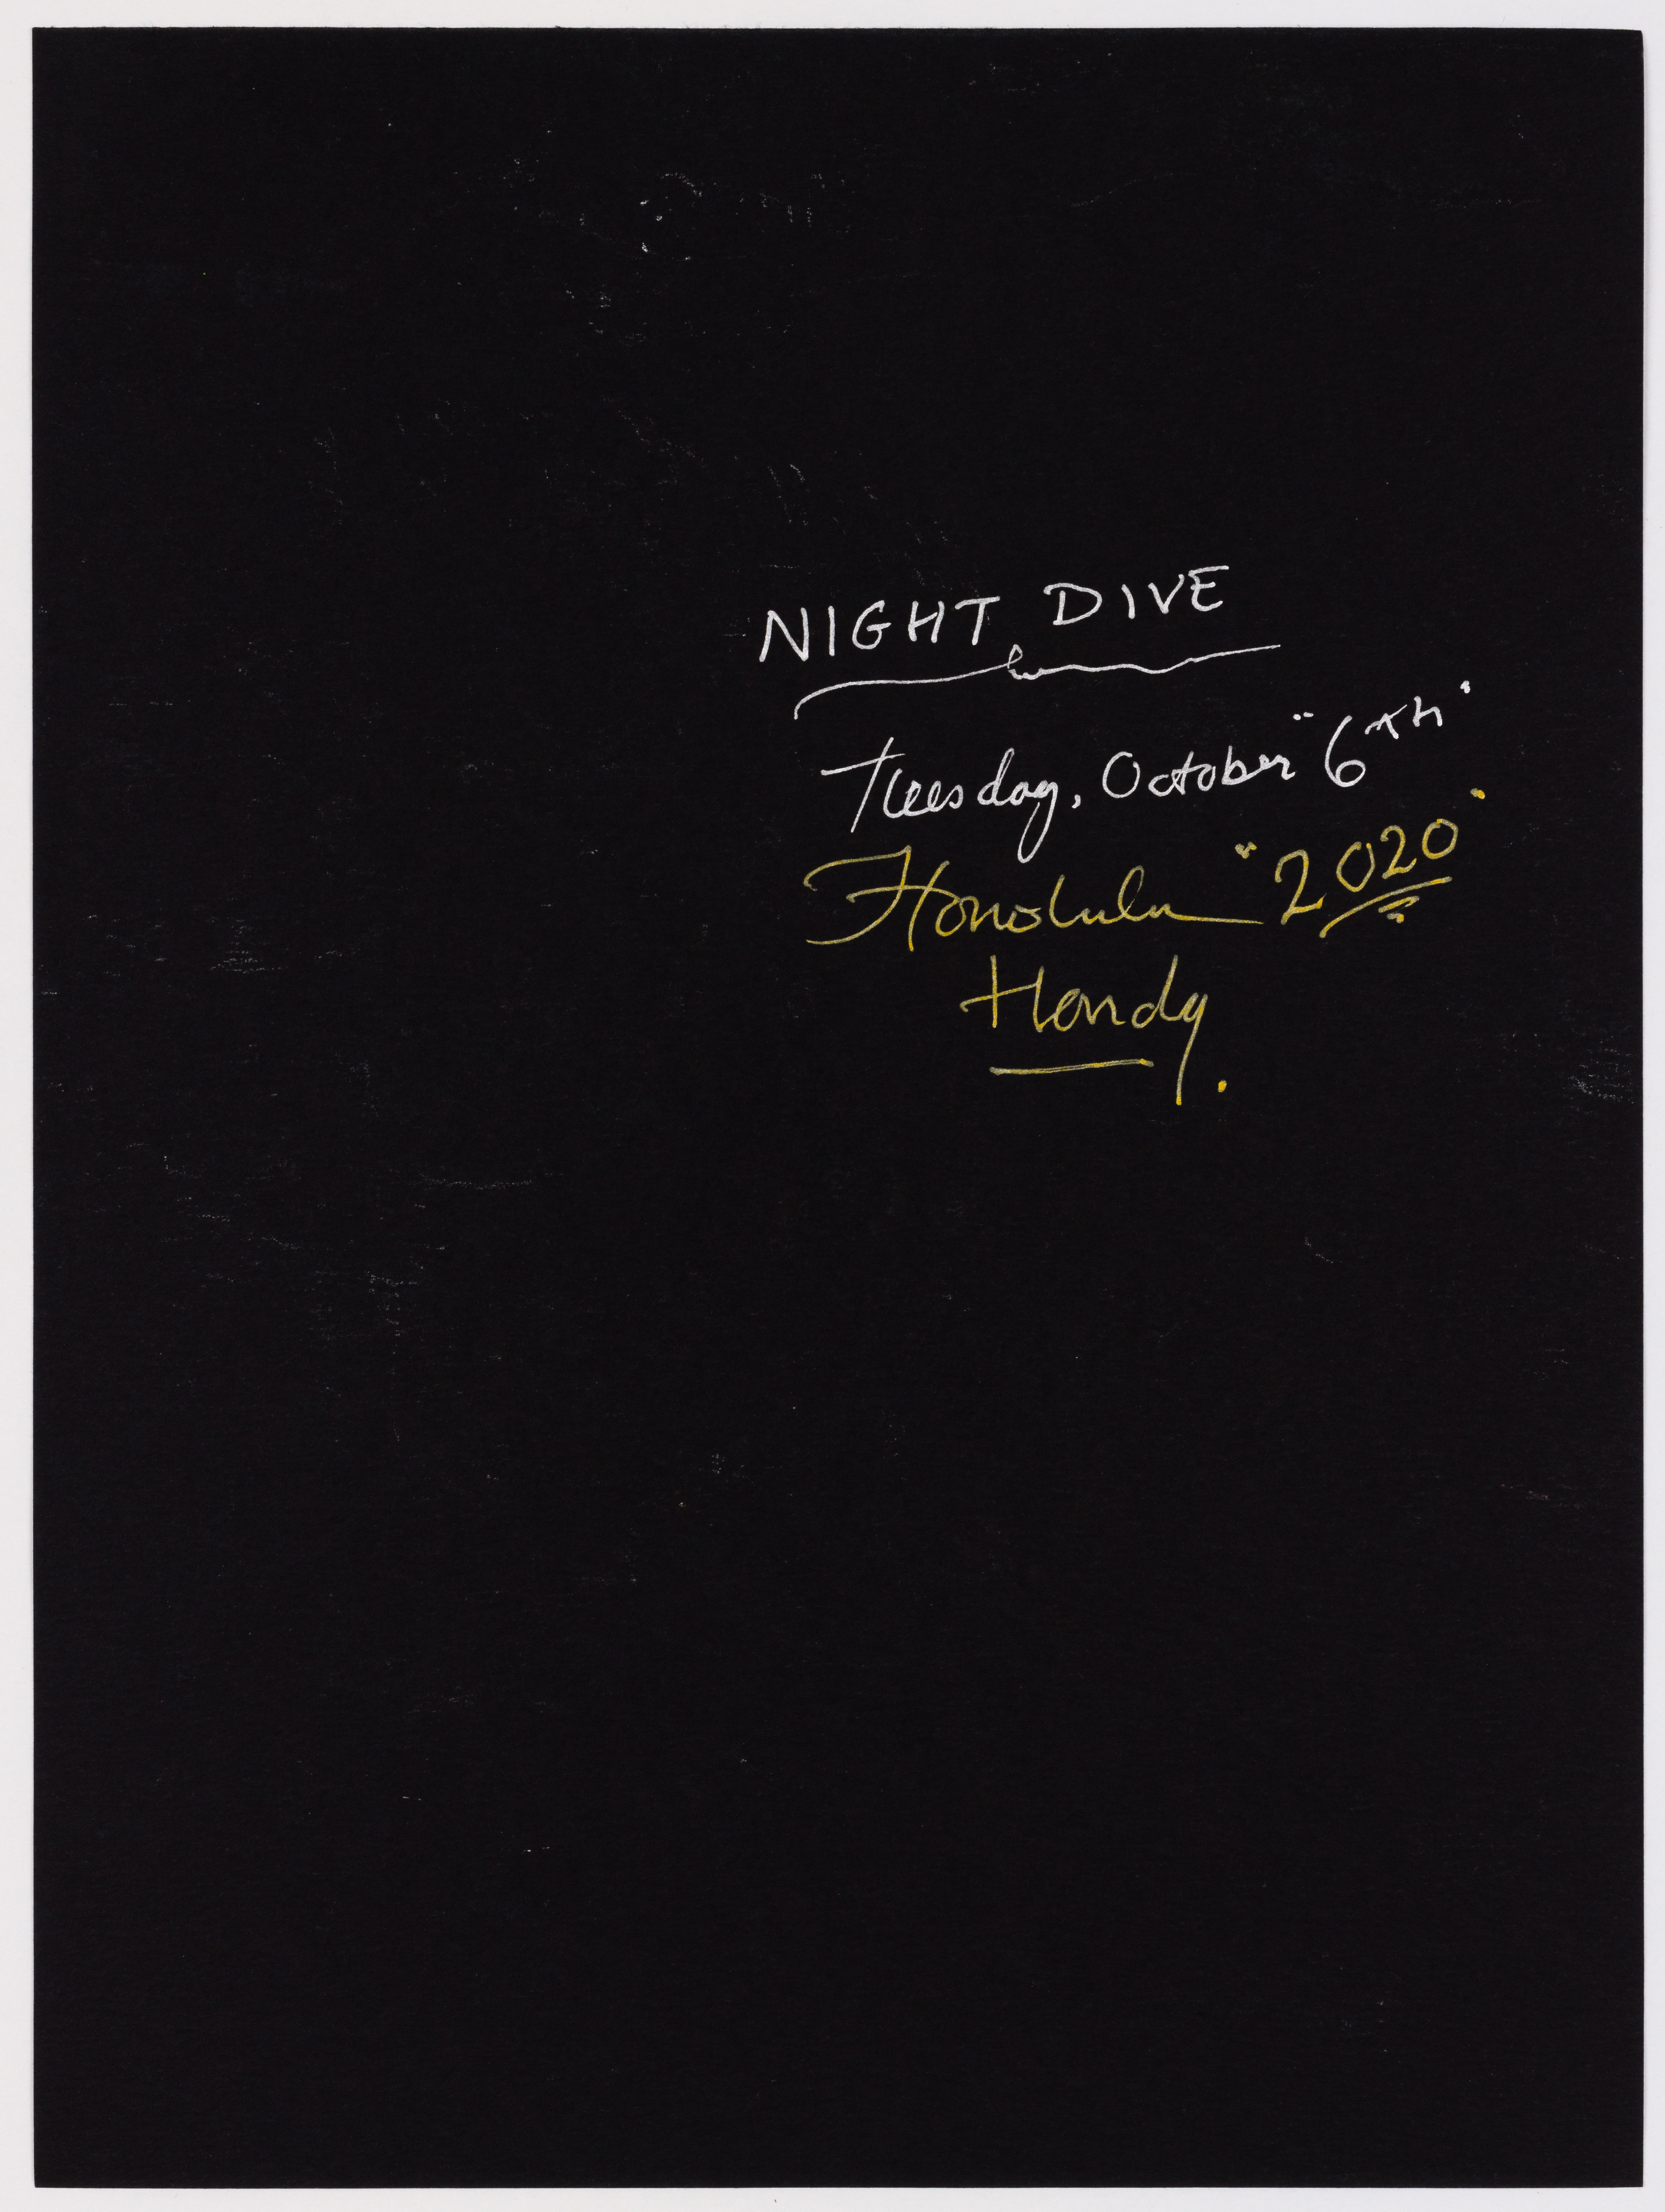 NIGHT DIVE
Tuesday, October "6th"
Honolulu "2020"
Hendy.